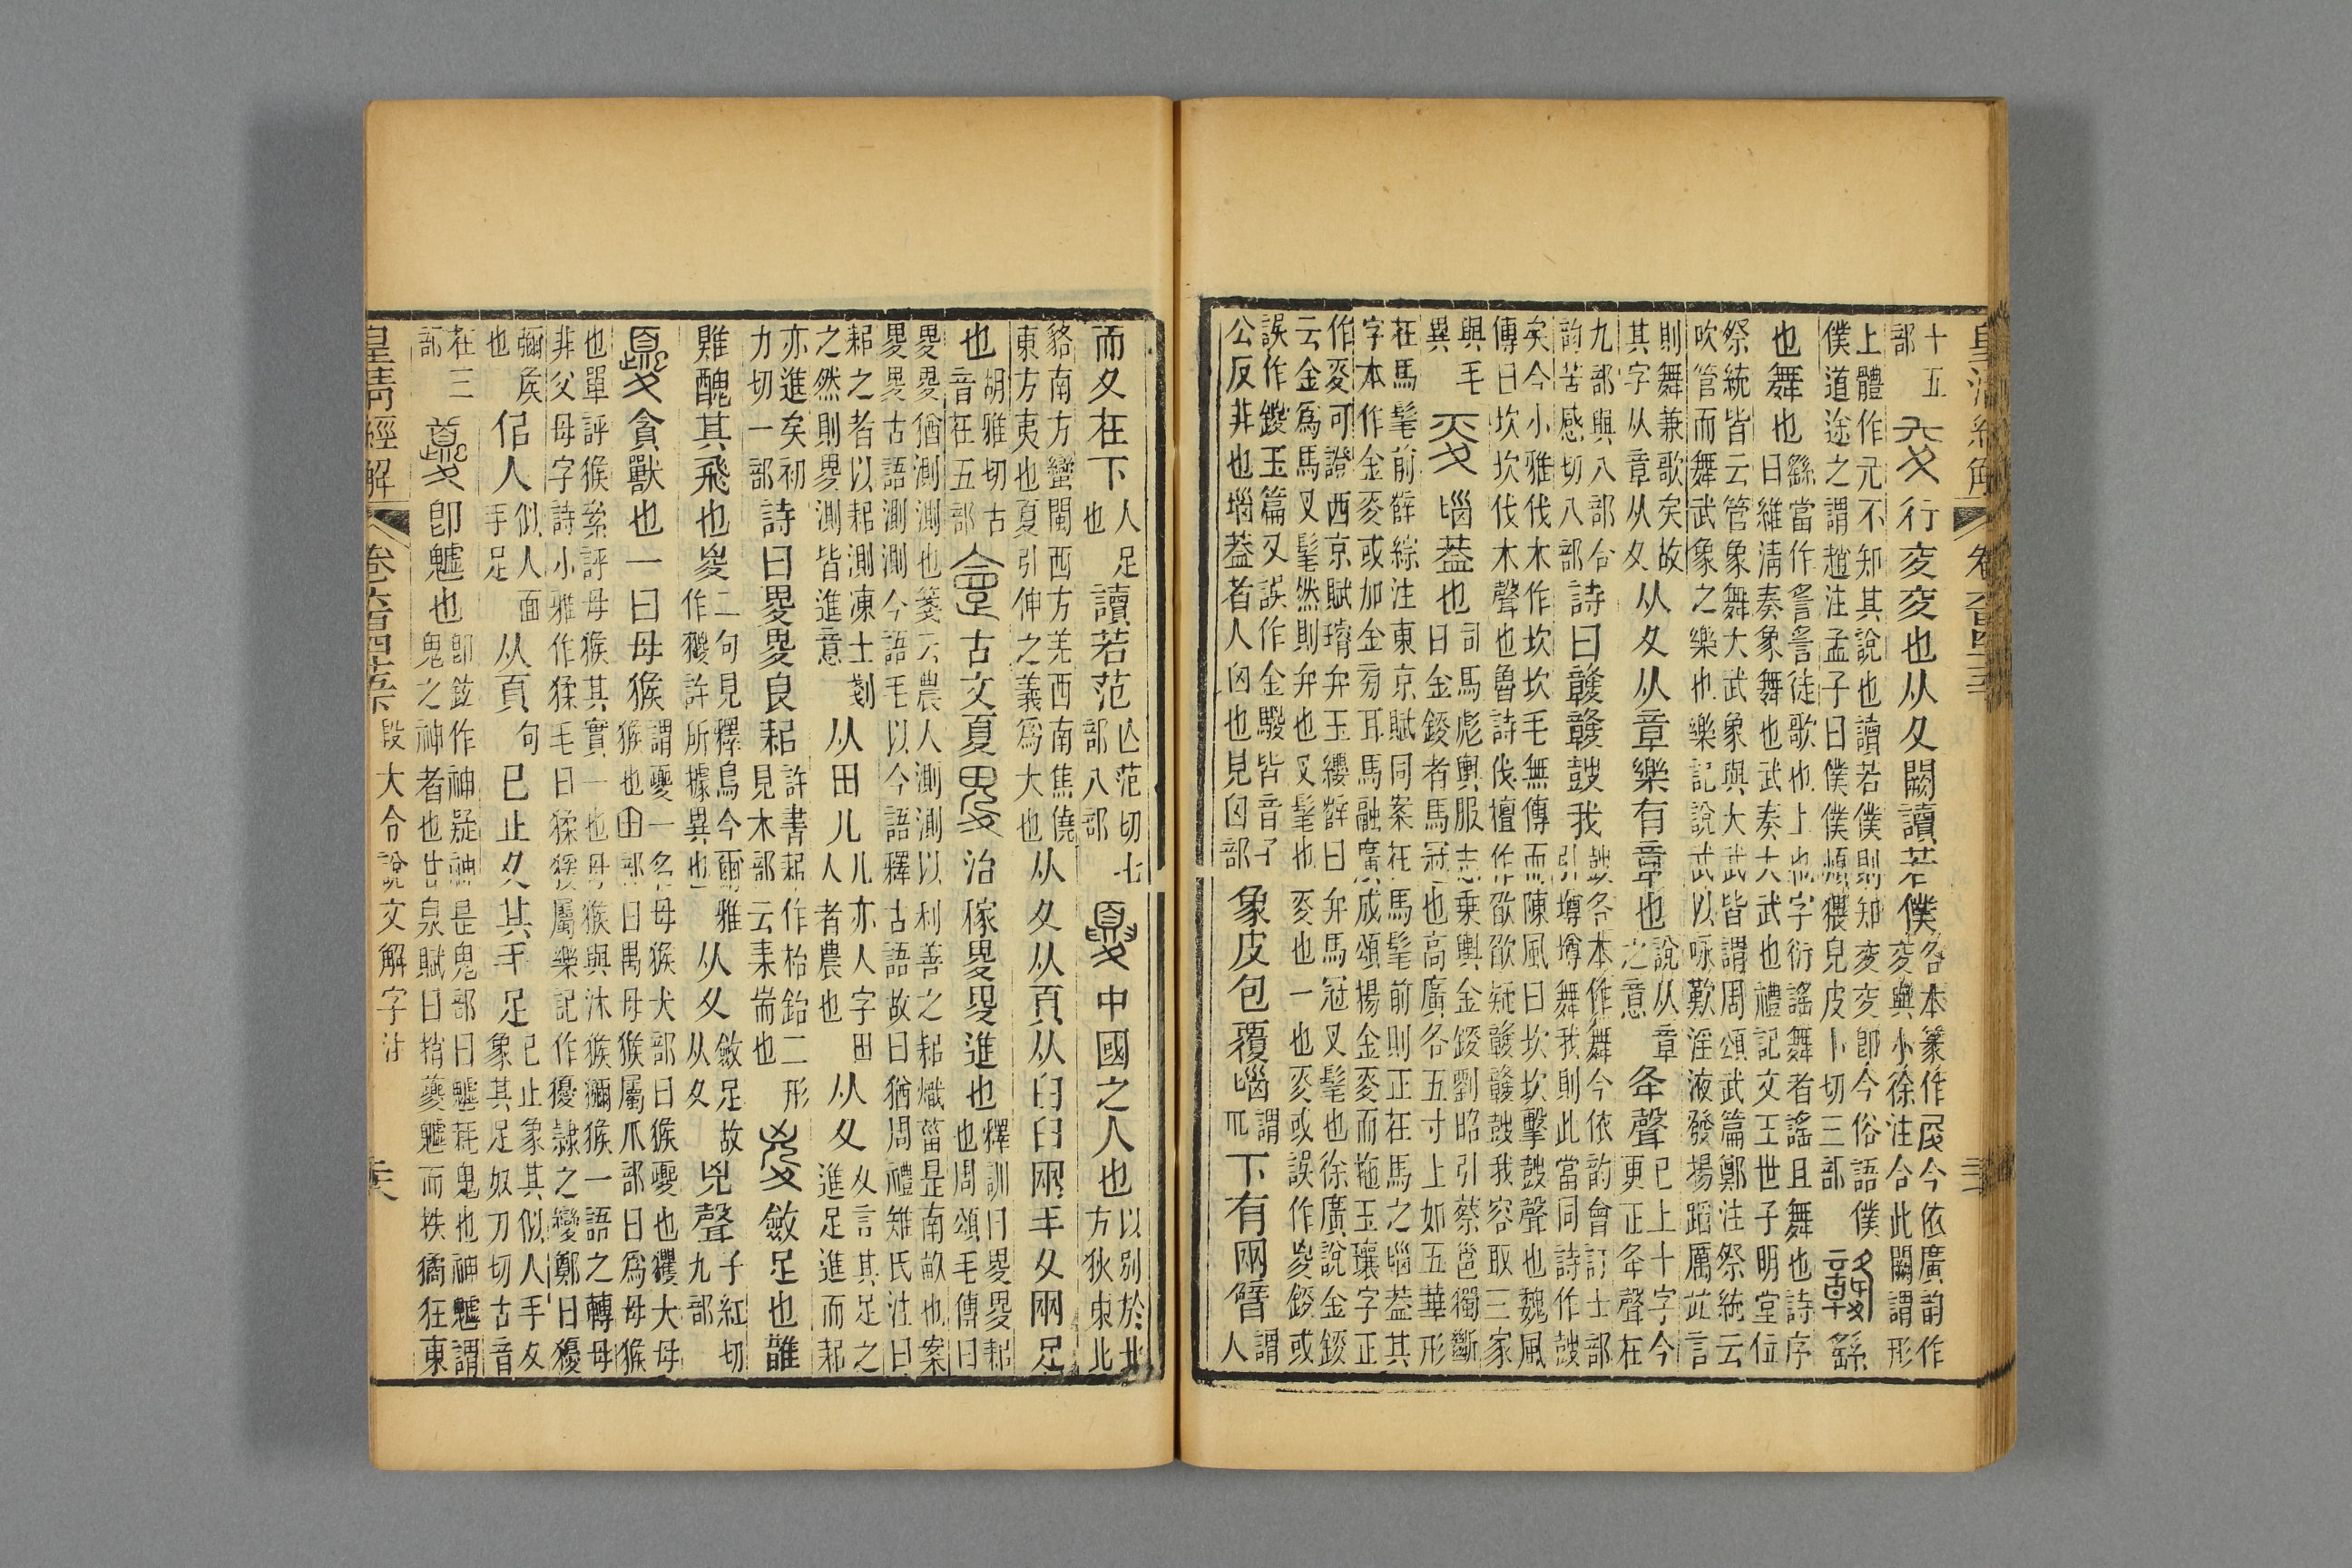 十五
部
行夋夋也从夊闕讀若僕
各本篆作今依廣韵作
與小徐注合此闕謂形
上體作亢不知其說也讀若僕則知即今俗語僕
僕道途之謂趙注孟子曰僕僕煩猥皃皮卜切三部
竷
繇
也舞也
繇當作䚻䚻徒歌也上也字衍謠舞者謠且舞也詩序
曰維淸奏象舞也武奏大武也禮記文王世子明堂位
祭統皆云管象舞大武象與大武皆謂周頌武篇鄭注祭統云
吹管而舞武象之樂也樂記說武以咏歎淫液發揚蹈厲竝言
則舞兼歌矣故
其字从章从夊
从夊从章樂有章也
說从章
之意
夅聲
已上十字今
更正夅聲在
九部與八部合
韵苦感切八部
詩曰竷竷鼓我
鼓各本作舞今依韵會訂士部
引墫墫舞我則此當同詩作鼓
矣今小雅伐木作坎坎毛無傳而陳風曰坎坎擊鼓聲也魏風
傳曰坎坎伐木聲也魯詩伐檀作欿欿疑竷竷鼓我容取三家
與毛
異
㚇
𡿺葢也
司馬彪輿服志乗輿金鋄劉昭引蔡邕獨斷
曰金鋄者馬冠也高廣各五寸上如五華形
在馬髦前薛綜注東京賦同案在馬髦前則正在馬之𡿺葢其
字本作金㚇或加金旁耳馬融廣成頌揚金㚇而拖玉瓖字正
作㚇可證西京賦璿弁玉纓薛曰弁馬冠叉髦也徐廣說金鋄
云金爲馬叉髦然則弁也叉髦也㚇也一也㚇或誤作㚇鋄或
誤作鍐玉篇又誤作金騣皆音子
公反非也𡿺葢者人囟也見囟部
象皮包覆𡿺
謂
下有兩臂
謂
人
皇淸經解
卷六百四十五
而夊在下
人足
也
讀若范
亡范切七
部八部
夏
中國之人也
以別於北
方狄東北
貉南方蠻閩西方羌西南焦僥
東方夷也夏引伸之義爲大也
从夊从頁从𦥑𦥑兩手夊兩足
也
胡雅切古
音在五部
古文夏
畟
治稼畟畟進也
釋訓曰畟畟耜
也周頌毛傳曰
畟畟猶測測也箋云農人測測以利善之耜熾菑是南畝也案
畟畟古語測測今語毛以今語釋古語故曰猶周禮雉氏注曰
耜之者以耜測凍土剗
之然則畟測皆進意
从田儿
儿亦人字田
人者農也
从夊
夊言其足之
進足進而耜
亦進矣初
力切一部
詩曰畟畟良耜
許書耜作枱鉛二形
見木部云耒耑也
㚇
斂足也䧿
鶪醜其飛也㚇
二句見釋鳥今爾雅
作獿許所據異也
从夊
斂足故
从夊
兇聲
子紅切
九部
夒
貪獸也一曰母猴
謂夒一名母猴犬部曰猴夒也玃大母
猴也由部曰禺母猴屬爪部曰爲母猴
也單評猴絫評母猴其實一也母猴與沐猴獼猴一語之轉母
非父母字詩小雅作猱毛曰猱猨屬樂記作獶隸之變鄭曰獶
獼猴
也
佀人
佀人面
手足
从頁
句
巳止夊其手足
已止象其似人手夊
象其足奴刀切古音
在三
部
夔
卽魖也
卽鉉作神疑神是鬼部曰魖秏鬼也神魖謂
鬼之神者也甘泉賦曰捎夔魖而抶獝狂東
皇淸經解
卷六百四十五
段大令說文解字注